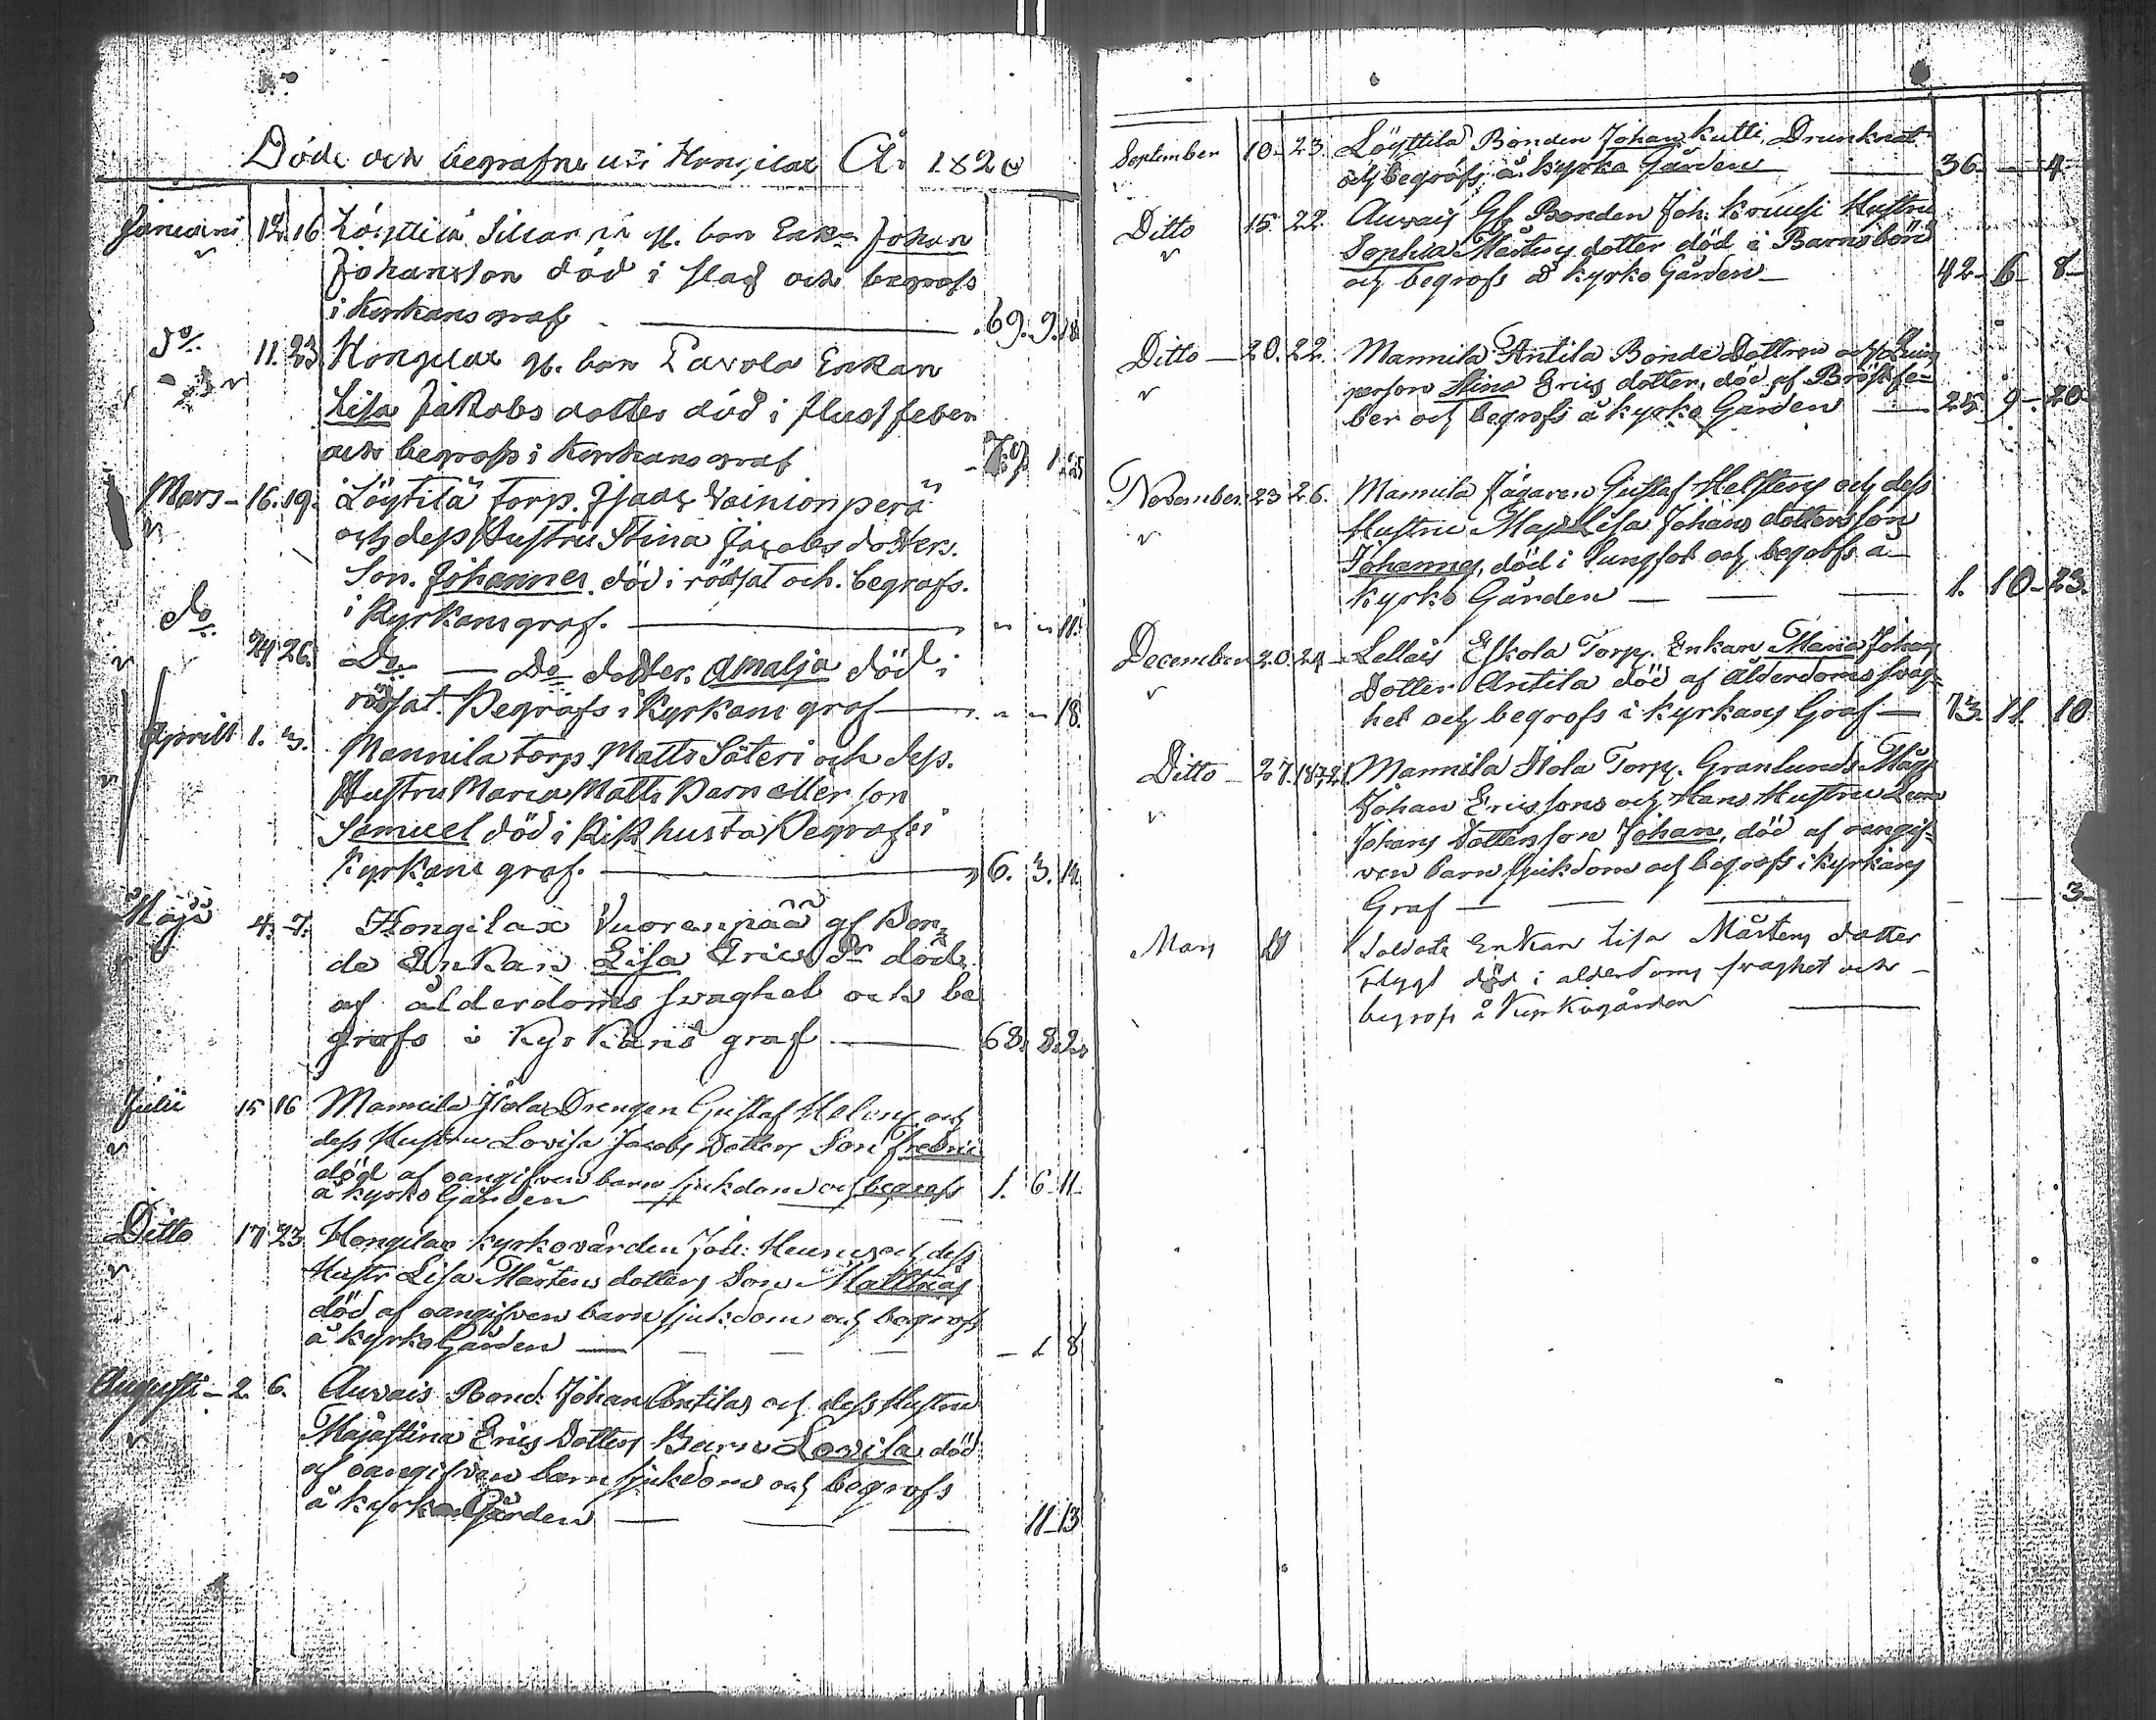 Döde och begrafne uti Hongilax År 1820
Januari 12. 16 Löyttilä gl. bon Enk. Johan
Johansson död i slag och begrofs
i Kyrkans graf 69. 9. 18
do. 11. 23 Hongilax gl. bon Tavola Enkan
Lisa Jakobs dotter död i fluss feber
och begrofs i Kyrkans graf
Mars - 16. 19. Löytilä Torp. Isaac Vainionperä
och dess Hustru Stina Jacobs dotters.
Son. Johannes död i rödsot och. begrofs.
i Kyrkans graf. " " 11.
do 24 26. Do — Do dotter. Amalja död i
rödsot. Begrafs i Kyrkans graf " " 18.
Aprill 1. 3. Mannila torp Matts Säteri och dess.
Hustru Maria Matts Barn eller son
Samuel död i Kikhusta Begrafs i
Kyrkans graf. 6. 3. 14.
Maji 4. 7. Hongilax Vuorenpää gl Bon
de Enkan Lisa Erics Dr död
af ålderdoms svaghet och be
grofs i Kyrkans graf 68. 8. 2.
Julii 15 16 Mannila Isola Drengen Gustaf och
dess Hustru Lovisa Jacobs Dotters Son Fredric
död af oangifven barn sjukdom och begrofs
å kyrko Gården 1. 6 - 11 -
Ditto 17 23 Hongilax kyrkovärden Joh: och dess
Hustr Lisa Mårtens dotters Son Matthias
död af oangifven barn sjukdom och begrofs
å kyrko Gården — — — — 1 8
Augusti - 2. 6. Auvais Bond. Johan Antilas och dess Hustru
Majastina Erics Dotters Barn Lovisa död
af oangifven barn sjukdom och begrofs
å kyrko Gården — — — 11 - 13
September 10 - 23 Löyttilä Bonden Johan Kutti, Drunknat
och begrofs å kyrko Gården 36. — 4
Ditto 15 22. Auvais Gl. Bonden Joh. Kruusi Hustru
Sophia Mårtens dotter död i Barnsbörd
och begrofs å kyrko Gården — 42 - 6 - 8 -
Ditto — 20. 22. Mannila Antila Bonde Dottren och
person Stina Erics dotter, död af Bröstfe=
ber och begrofs å kyrko Gården — 25. 9 - 20
November. 23 26. Mannila Jägaren Gustaf Helsten och dess
Hustru Maja Lisa Johans dotters son
Johannes, död i lungsot och begrofs å
kyrko Gården — — — 1. 10 - 23.
December 20. 24 - Lellais Eskola Torp. Enkan Maria Johans
Dotter Antila död af Ålderdoms svag=
het och begrofs i kyrkans Graf — 73. 11. 10
Ditto - 27. Mannila Isola Torp. Granlunds Måg
Johan Ericssons och Hans Hustru
Johans Dotters son Johan, död af oangif=
ven barn sjukdom och begrofs i kyrkans
Graf — — — — — 3 -
Mars Soldats Enkan Lisa Mårtens dotter
Flygt död i alderdoms svaghet och —
begrofs å Kyrkogården